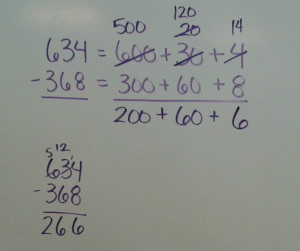 120
500 20 14
634 = 600 + 30 + 4
- 368 = 300 + 60 + 8
200 + 60 + 6
5 12 1
634
- 368
266